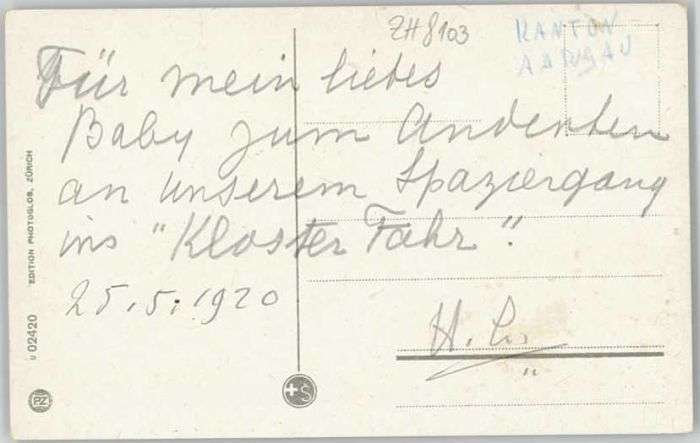 ZH 8103
KANTON
AARGAU
Für mein liebes
Baby zum Andenken
an unserem Spaziergang
ins "Kloster Fahr".
25.5.1920
H.
EDITION PHOTOGLOB, ZÜRICH
U 02420
PZ
+S